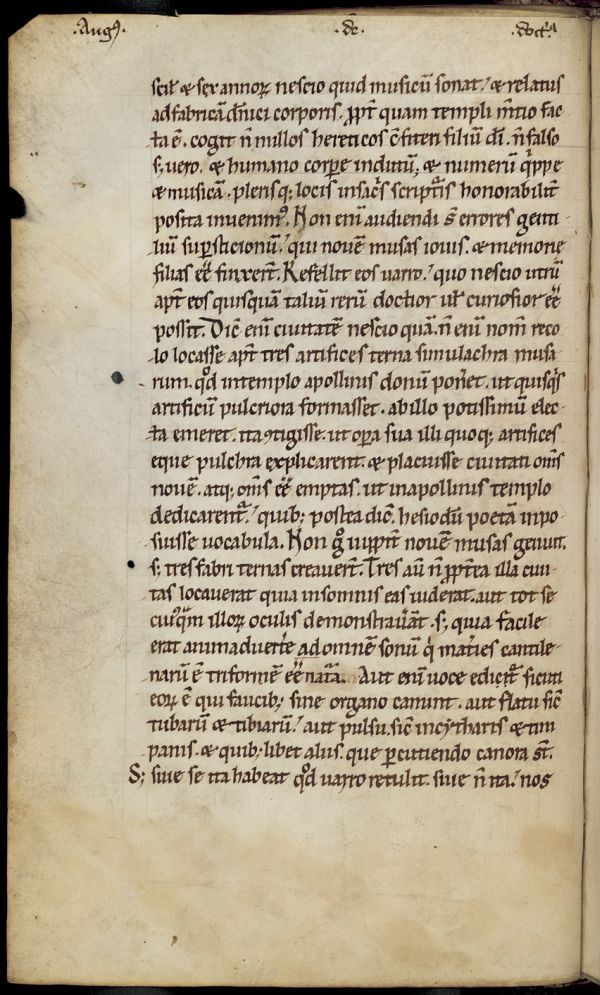 .Augꝰ. .de. .doctᵃ
scil̃ & sex annoꝝ nescio quid musicū sonat. & relatus
ad fabricā dn̄ici corporis. ꝓpt̄ quam templi m̄tio fac
ta ē. cogit n̄ nullos hereticos c̄fiteri filiū dī. n̄ falso
s; uero. & humano corꝑe indutū; & numerū q̇ppe
& musicā. plerisq; locis in sac̄s scriptᷓis honorabilit̄
posita inuenimꝰ. Non enī audiendi s̄ errores genti
liū suꝑsticionū. qui nouē musas iouis. & memorie
filias ēē finxer̄t. Refellit eos uarro. quo nescio utrū
apt̄ eos quisquā taliū rerū doctior ul̃ curiosior ēē
possit. Dic̄ enī ciuitatē nescio quā. n̄ enī nom̄ reco
lo locasse apt̄ tres artifices terna simulachra musa
rum. qd̄ in templo apollinis donū pon̄et. ut quisq̇s
artificū pulcriora formasset. ab illo potissimū elec
ta emeret. ita ꝯtigisse. ut oꝑa sua illi quoq; artifices
eque pulchra explicarent. & placuisse ciuitati om̄s
nouē. atq; om̄s ēē emptas. ut in apollinis templo
dedicarentᷣ. quib; postea dic̄. hesiodū poetā inpo
suisse uocabula. Non g̊ iuppit̄ nouē musas genuit.
s; tres fabri ternas creauer̄t. Tres aū n̄ ꝓpt̄ea illa ciui
tas locauerat quia in somnis eas uiderat. aut tot se
cuiꝰq̄m illoꝝ oculis demonstrauer̄at. s; quia facile
erat animaduert̄e ad omnē sonū q̇ mat̄ies cantile
narū ē triformē ēē natᷓa. Aut enī uoce editᷣ sicuti
eoꝝ ē qui faucib; sine organo canunt. aut flatu sic̄
tubarū & tibiarū. aut pulsu. sic̄ in cytharis & tim
panis. & quib;libet aliis. que ꝑcutiendo canora st̄.
S; siue se ita habeat qd̄ uarro retulit. siue n̄ ita. nos